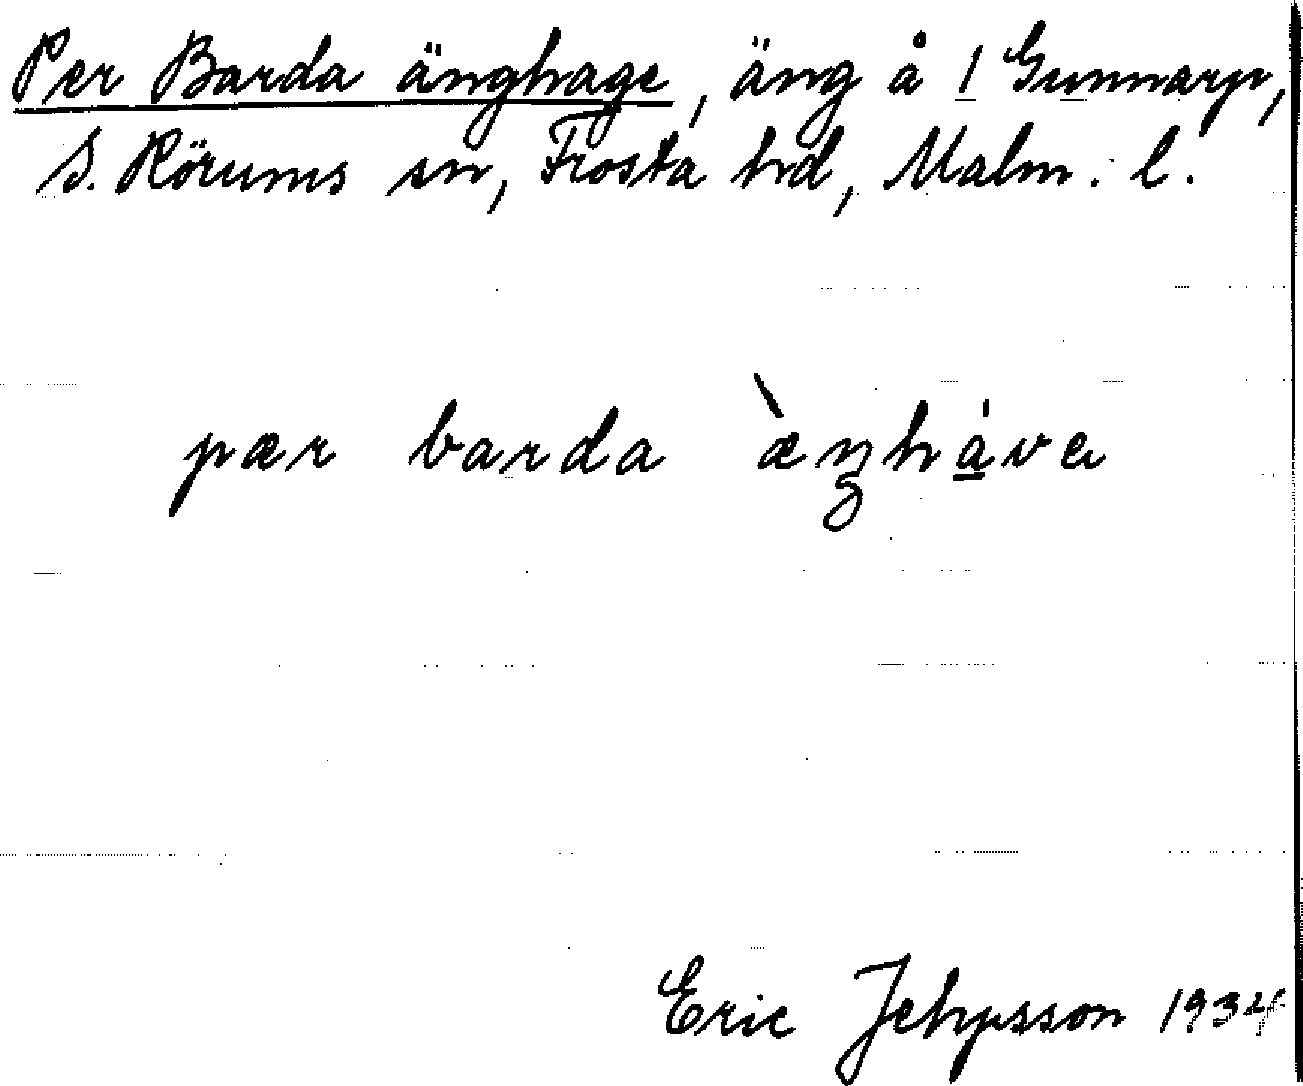 Per Barda änghage, äng å 1 Gunnarp,
S. Rörums sn, Frosta hd, Malm. l.
pær barda æ̀ŋháva
Eric Jehpsson 1934